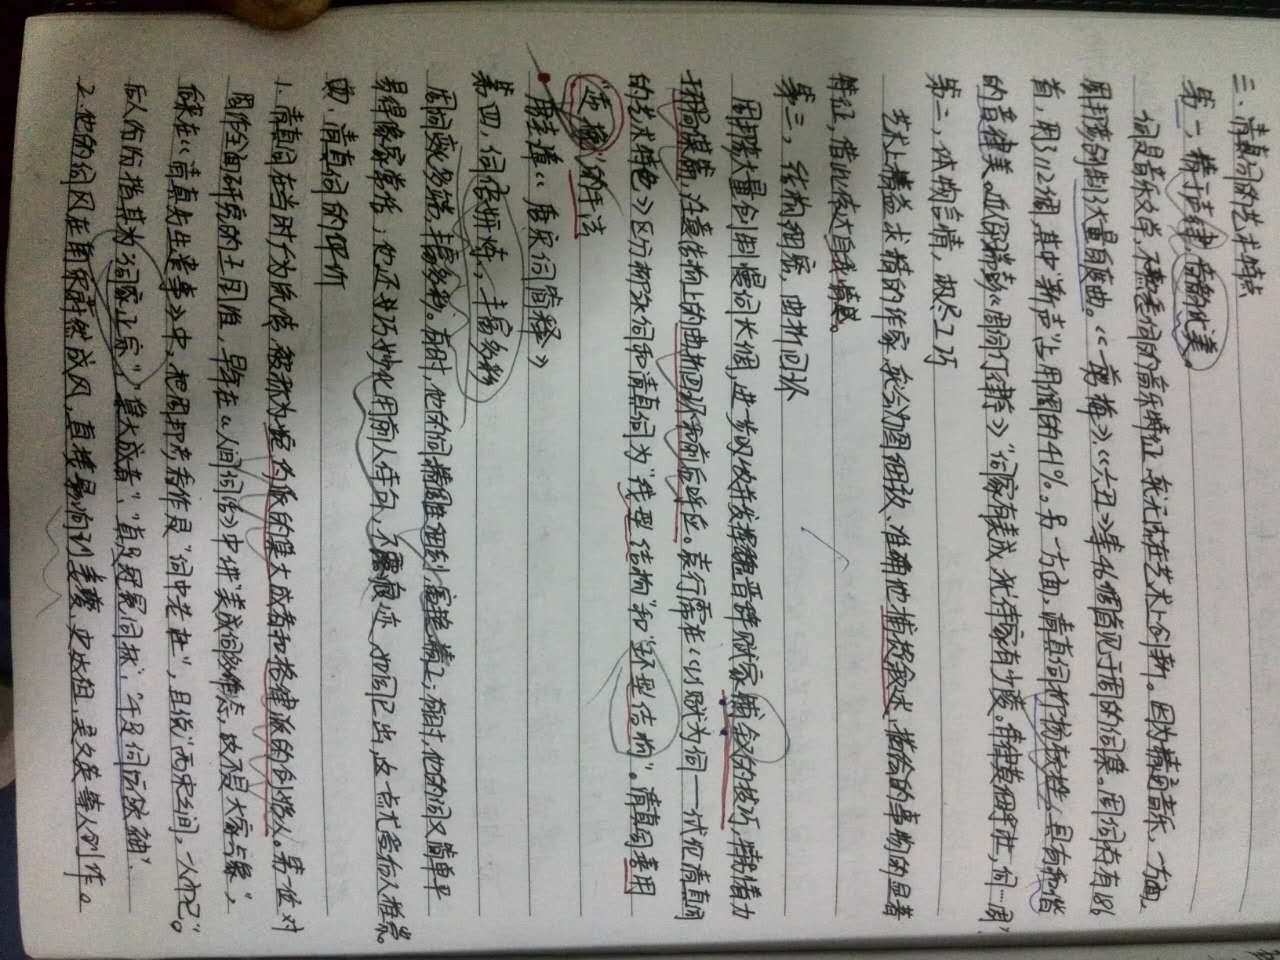 三、清真词的艺术特点
第一,精于声律,音韵优美。
词是音乐文学,不熟悉词的音乐特征,就无法在艺术上创新。因为精通音乐,一方面,
周邦彦创制了大量自度曲。《一剪梅》、《六丑》等46调首见于周的词集。周词存有186
首,用了112调,其中"新声"占用调的41%。另一方面,清真词抑扬较挫,具有和谐
的音律美。近人邵瑞彭《周词订律序》"词家有美成,犹律家有少陵。律莫细乎杜,词…周"
第二,体物言情,极尽工巧
艺术上精益求精的作家,就会力图细致、准确地捕捉叙述、描绘的事物的显著
特征,借此传达自我情感。
第三,结构细密,曲折回环
周邦彦大量创制慢词长调,进步吸收并发挥魏晋辞赋家铺叙的技巧,特别着力
于布局谋篇,注意结构上的曲折回环和前后呼应。袁行霈在《以赋为词——试论清真词
的艺术特色》区分柳永词和清真词为"线型结构"和"环型结构"。清真词善用
"逆挽"的手法
唐圭璋《唐宋词简释》
第四,词语妍炼,丰富多彩
周词变化多端,丰富多彩。有时,他的词精雕细刻,富艳精工;有时,他的词又简单平
易得像家常话;他还善巧妙化用前人诗句,不露痕迹,如同己出,这一点尤受后人推崇。
四、清真词的评价
1.清真词在当时广为流传,被称为婉约派的集大成者和格律派的创始人。第一位对
周作全面研究的王国维,早年在《人间词话》中讲"美成词多作态,故不是大家气象",
后来在《清真先生遗事》中,把周邦彦看作是"词中老杜",且说"两宋之间,一人而已"。
后人纷纷指其为"词家正宗"、"集大成者"、"真足冠冕词林"、"千足词坛领袖".
2.他的词风在南宋蔚然成风,直接影响到姜夔、史达祖、吴文英等人创作。